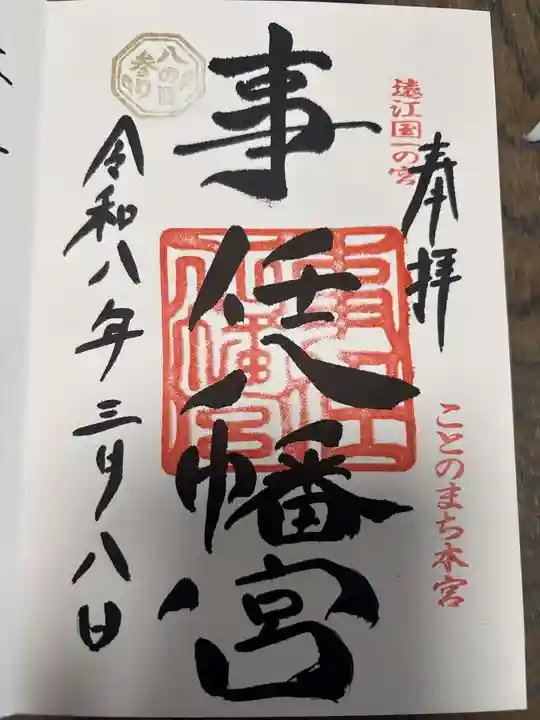 遠江国一の宮
奉拝
ことのまち本宮
事任八幡宮
八の日
参拝
令和八年三月八日